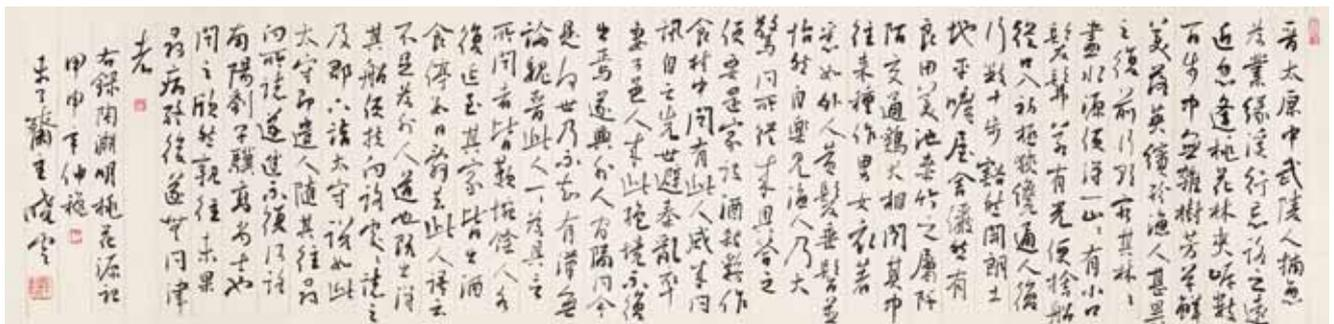 晋太原中武陵人捕魚
為業緣溪行忘路之遠
近忽逢桃花林夾岸數
百步中無雜樹芳草鮮
美落英繽紛漁人甚異
之復前行欲窮其林々
盡水源便得一山々有小口
髣髴若有光便捨船
從口入初極狹纔通人復
行數十步豁然開朗土
地平曠屋舍儼然有
良田美池桑竹之屬阡
陌交通雞犬相聞其中
往來種作男女衣著
悉如外人黃髮垂髫並
怡然自樂見漁人乃大
驚問所從來具答之
便要還家設酒殺雞作
食村中聞有此人咸來問
訊自云先世避秦亂率
妻子邑人來此絕境不復
出焉遂與外人間隔問今
是何世乃不知有漢無
論魏晉此人一一為具言
所聞者皆歎惋餘人各
復延至其家皆出酒
食停數日辭去此人語云
不足為外人道也既出得
其船便扶向路處々誌之
及郡下詣太守說如此
太守即遣人隨其往尋
向所誌遂迷不復得路
南陽劉子驥高尚士也
聞之欣然親往未果
尋病終後遂無問津
者
右錄陶淵明桃花源記
甲申年仲秋
未了齋主曉雲